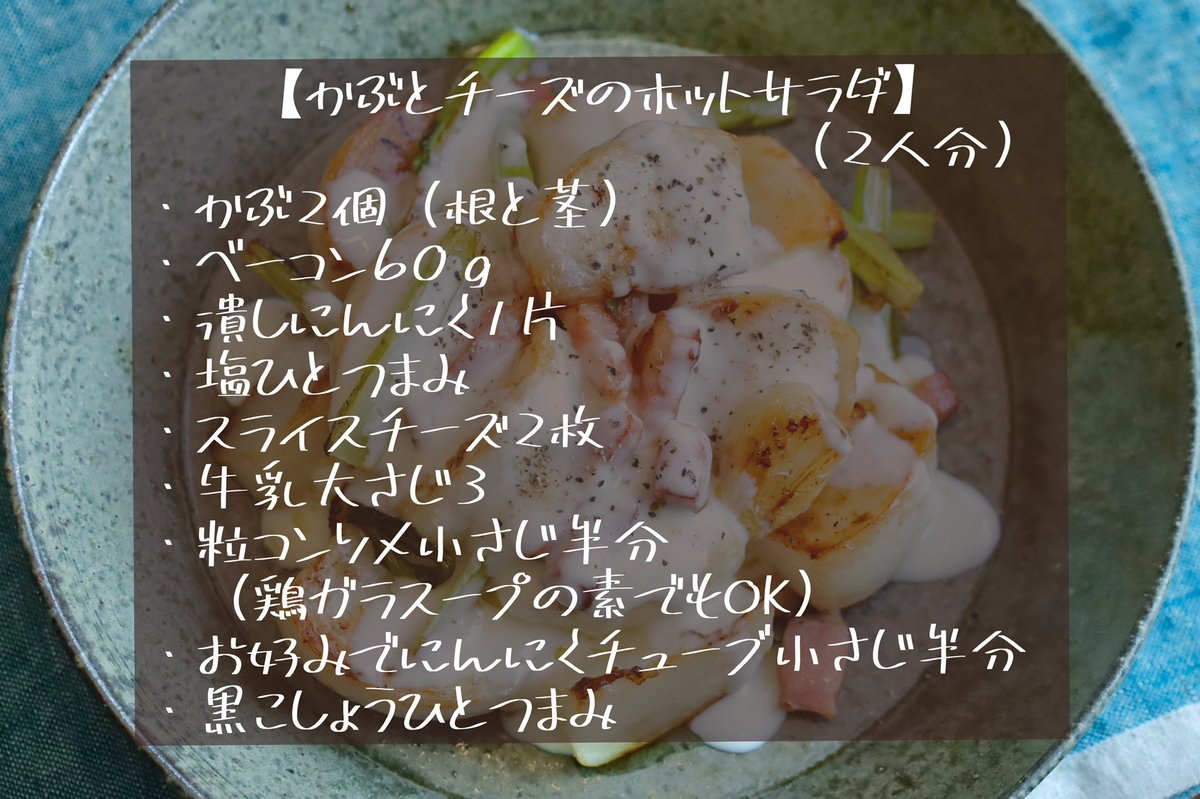 【かぶとチーズのホットサラダ】
（2人分）
・かぶ2個（根と茎）
・ベーコン60g
・潰しにんにく1片
・塩ひとつまみ
・スライスチーズ2枚
・牛乳大さじ3
・粒コンソメ小さじ半分
（鶏ガラスープの素でもOK）
・お好みでにんにくチューブ小さじ半分
・黒こしょうひとつまみ